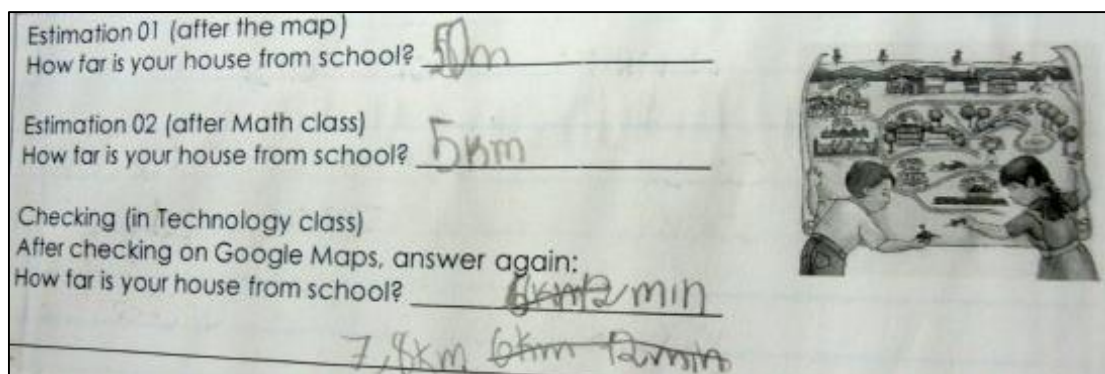 Estimation 01 (after the map)
How far is your house from school? 50m
Estimation 02 (after Math class)
How far is your house from school? 5km
Checking (in Technology class)
After checking on Google Maps, answer again:
How far is your house from school? 6km 12 min
7,8km 6km 12 min